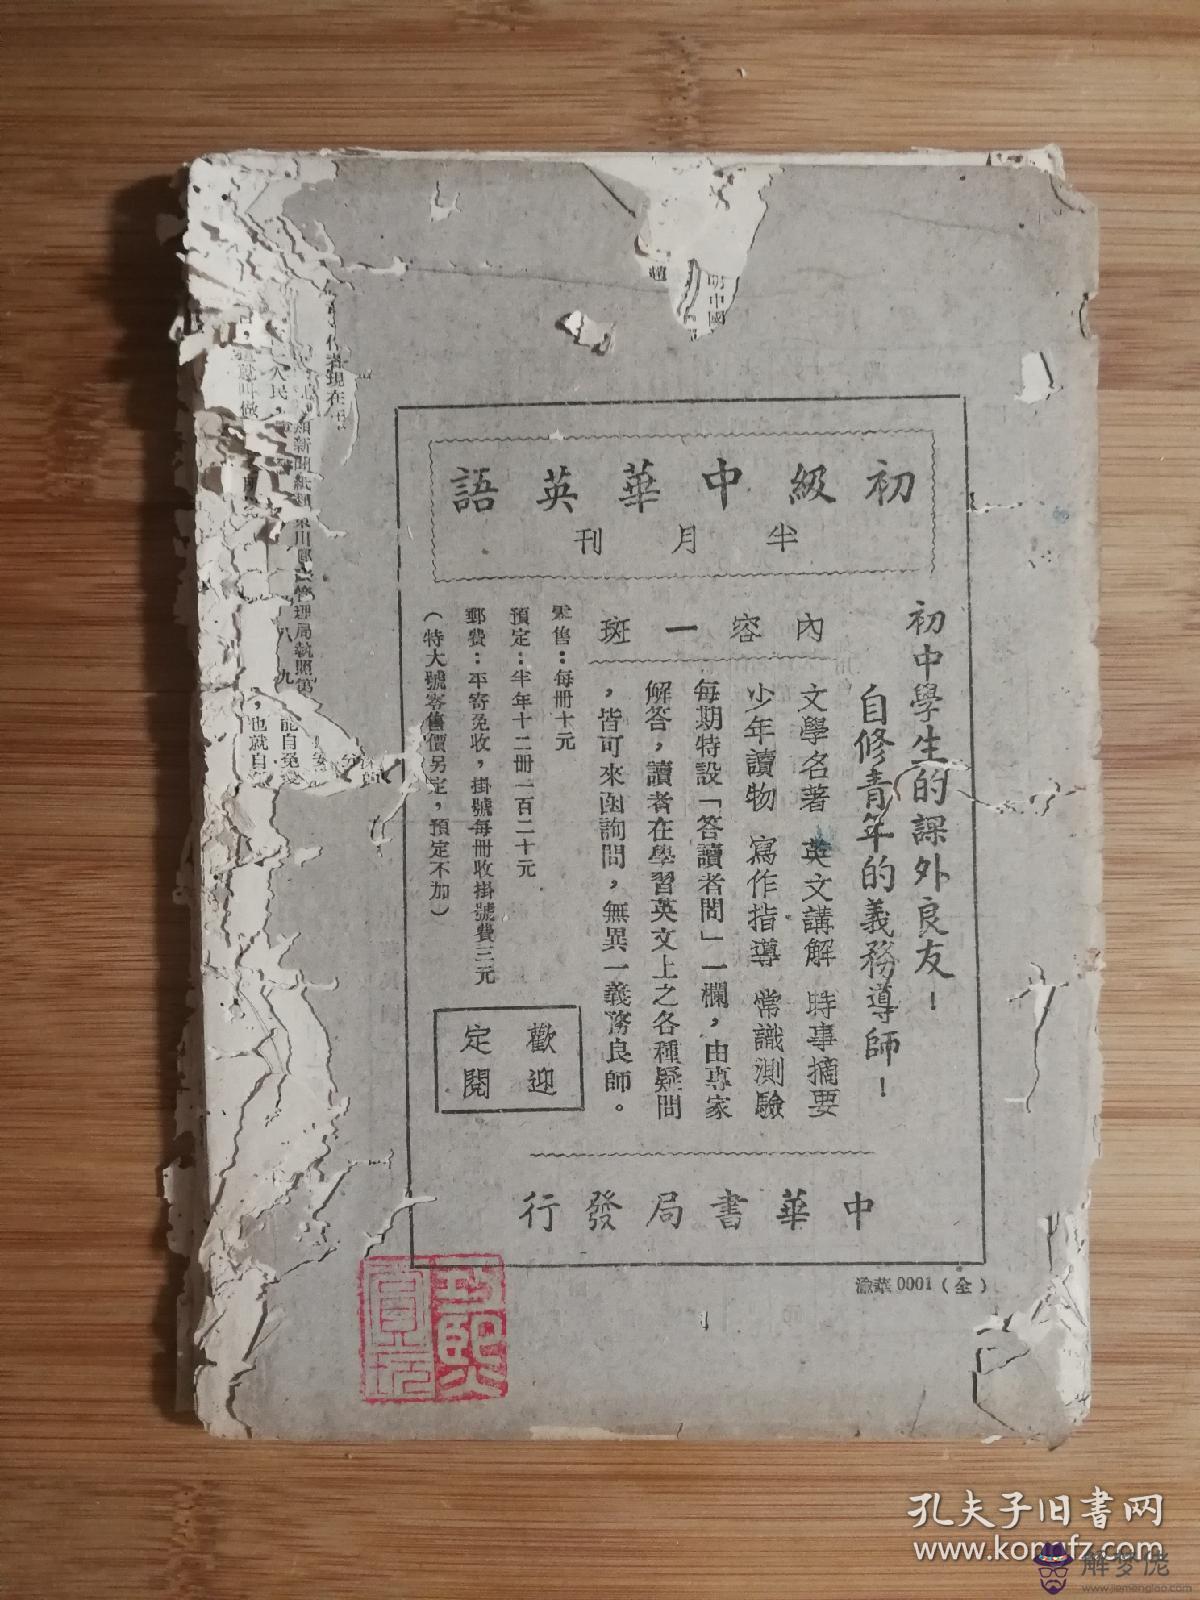 初級中華英語
半月刊
初中學生的課外良友！
自修青年的義務導師！
內容一斑
文學名著 英文講解 時事摘要
少年讀物 寫作指導 常識測驗
每期特設「答讀者問」一欄，由專家
解答，讀者在學習英文上之各種疑問
，皆可來函詢問，無異一義務良師。
零售：每冊十元
預定：半年十二冊一百二十元
郵費：平寄免收，掛號每冊收掛號費三元
（特大號零售價另定，預定不加）
歡迎
定閱
中華書局發行
渝華0001（全）
孔夫子旧書网
www.kongfz.com
解梦佬
www.jiemenglao.com